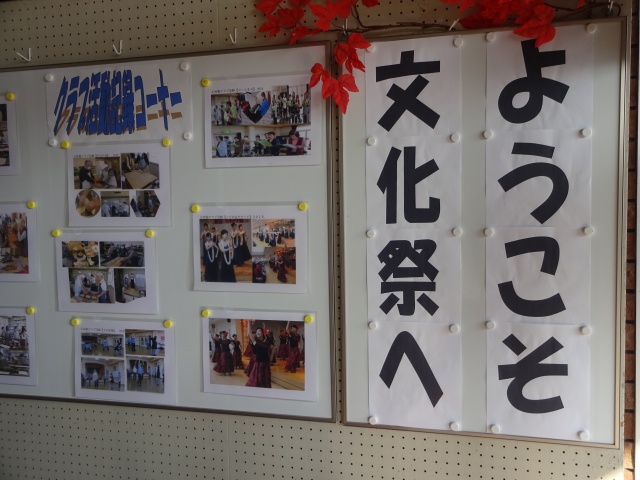 クラブ活動記録コーナー
ようこそ
文化祭へ